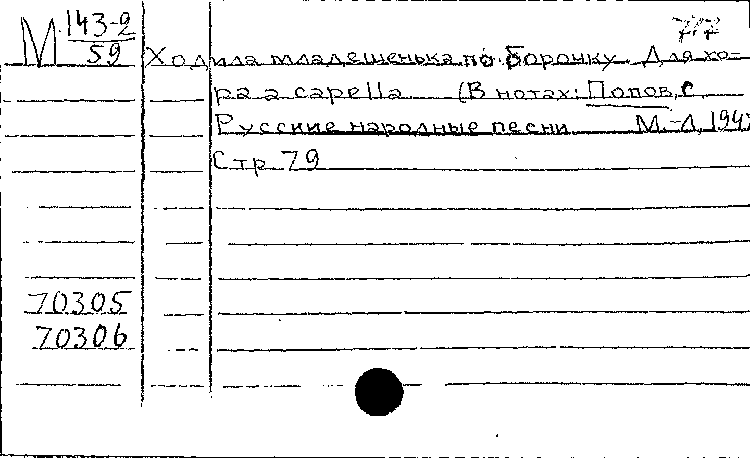 М 143-2
59
Ходила младешенька по борочку Для хо-
ра a capella (В нотах: Попов, С.
Русские народные песни М.-Л, 194
Стр 79
70305
70306